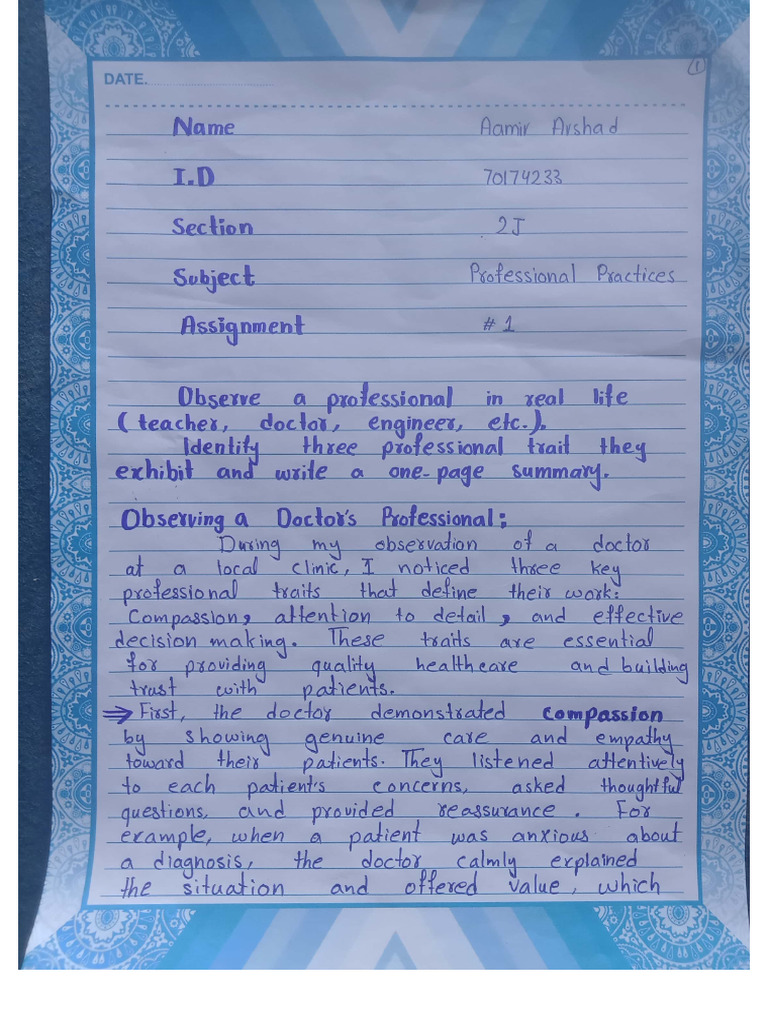 1
DATE.
Name Aamir Arshad
I.D 70174233
Section 2J
Subject Professional Practices
Assignment # 1
Observe a professional in real life
(teacher, doctor, engineer, etc.).
Identify three professional trait they
exhibit and write a one-page summary.
Observing a Doctor's Professional:
During my observation of a doctor
at a local clinic, I noticed three key
professional traits that define their work:
Compassion, attention to detail, and effective
decision making. These traits are essential
for providing quality healthcare and building
trust with patients.
⇒ First, the doctor demonstrated compassion
by showing genuine care and empathy
toward their patients. They listened attentively
to each patient's concerns, asked thoughtful
questions, and provided reassurance. For
example, when a patient was anxious about
a diagnosis, the doctor calmly explained
the situation and offered value, which